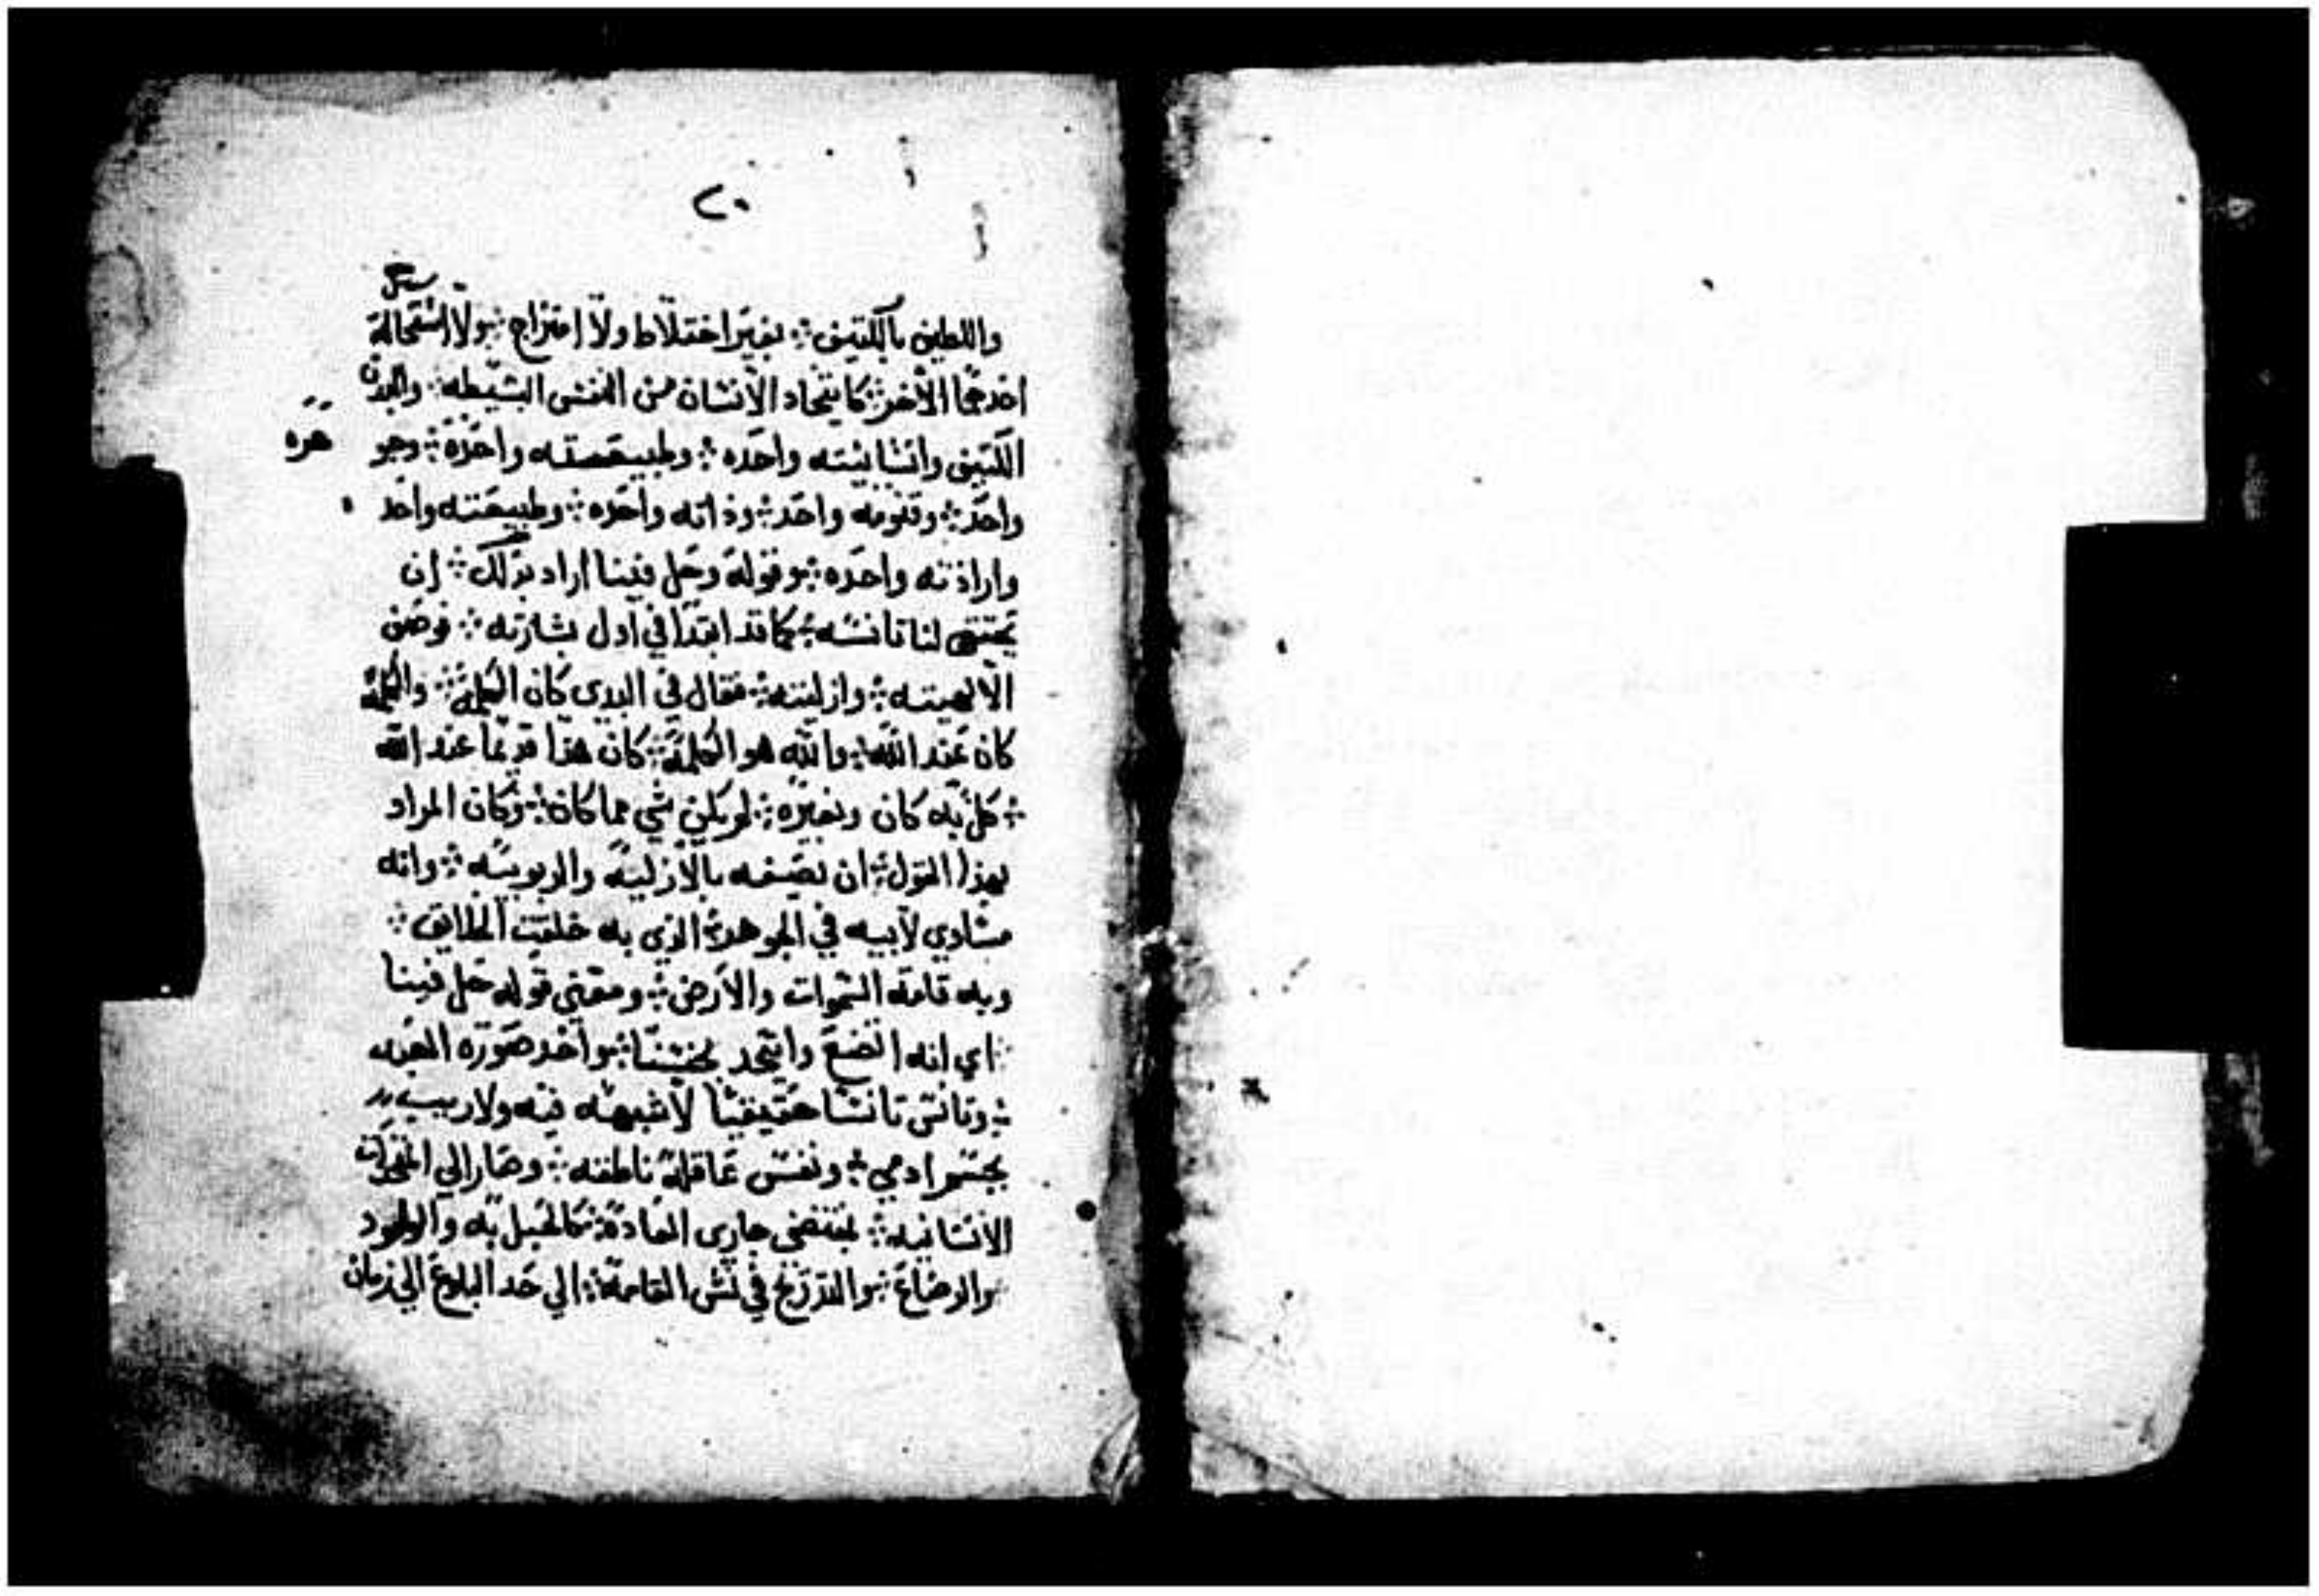 ٢٠
واللطيف بالكتيف ܀ بغير اختلاط ولا امتزاج ܀ ولا استحالة
احدهما الاخر ܀ كاتحاد الانسان من النفس البسيطه ܀ والبدن
الكتيف وانسانيته واحده ܀ وطبيعته واحدة ܀ وجو هره
واحد ܀ وقنومه واحد ܀ وذاته واحده ܀ وطبيعته واحد
وارادته واحده ܀ وقوله وحل فينا اراد بذلك ܀ ان
يحقق لنا تانسه ܀ كما قد ابتدا في اول بشارته ܀ فوصف
الالهيته ܀ وازليته ܀ فقال في البدي كان الكلمة ܀ والكلمة
كان عند الله ܀ والله هو الكلمة ܀ كان هذا قديما عند الله
܀ كل به كان وبغيره ܀ لم يكن شي مما كان ܀ وكان المراد
بهذا القول ܀ ان نصفه بالازلية والربوبيه ܀ وانه
مساوي لابيه في الجوهر ܀ الذي به خلقت الخلايق ܀
وبه قامة السموات والارض ܀ ومعني قوله حل فينا
܀ اي انه اتضع واتحد بجنسنا ܀ واخد صورة العبد
܀ وتانس تانسا حقيقيا لا شبهه فيه ولا ريب
بجسم ادمي ܀ ونفس عاقلة ناطقه ܀ وصار الي التحركات
الانسانيه ܀ بمقتضي جاري العادة ܀ كالحبل به والولود
والرضاع ܀ والتدريج في نشئ القامة ܀ الي حد البلوغ الي زمان